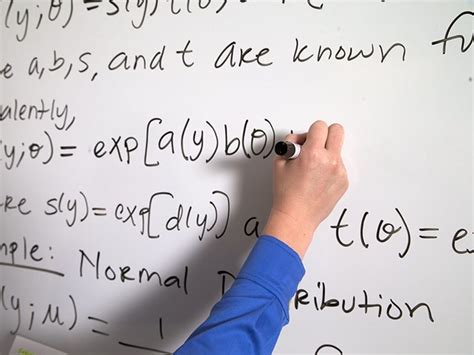 (y;θ) = s(y)t(θ)
e a,b,s, and t are known fu
valently,
(y;θ) = exp[a(y)b(θ)
re s(y)=exp[d(y)] a t(θ)=e
mple: Normal D ribution
(y;μ) = 1